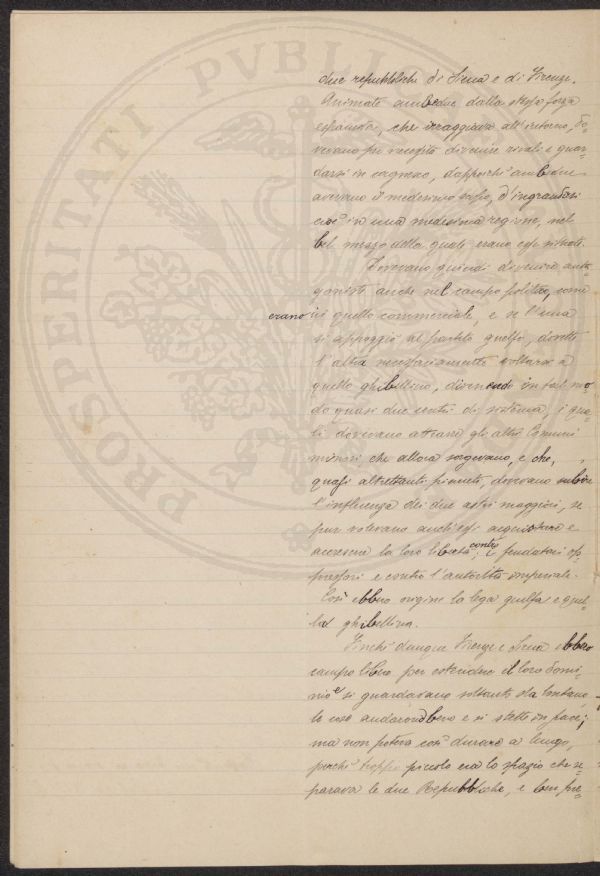 PROSPERITATI PVBLICAE
due repubbliche di Siena e di Firenze.
Animate ambedue dalla stessa forza
espansiva, che irraggiava all'intorno, do-
vevano per necessità divenire rivali e guar-
darsi in cagnesco, dappoichè ambedue
avevano il medesimo scopo, d'ingrandirsi
cioè in una medesima regione, nel
bel mezzo della quale erano esse situate.
Dovevano quindi divenire anta-
goniste anche nel campo politico, come
erano in quello commerciale, e se l'una
si appoggiò al partito guelfo, dovette
l'altra necessariamente voltarsi a
quello ghibellino, divenendo in tal mo-
do quasi due centri di sistema, i qua-
li dovevano attrarre gli altri Comuni
minori che allora sorgevano, e che,
quasi altrettanti pianeti, dovevano subire
l'influenza dei due astri maggiori, se
pur volevano anch'essi acquistare e
accrescere la loro libertà contro i feudatari op-
pressori e contro l'autorità imperiale.
Così ebbero origine la lega guelfa e quel-
la ghibellina.
Finchè dunque Firenze e Siena ebbero
campo libero per estendere il loro domi-
nio e si guardavano soltanto da lontano,
le cose andarono bene e si stette in pace;
ma non poteva così durare a lungo,
perchè troppo piccolo era lo spazio che se-
parava le due Repubbliche, e ben pre-